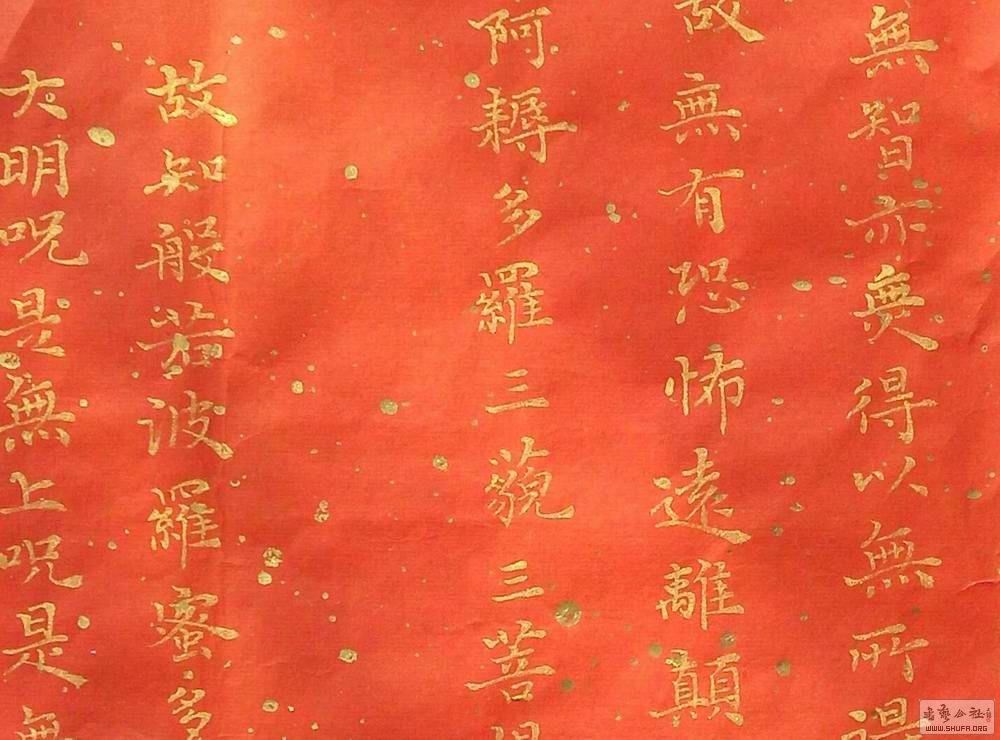 無智亦無得以無所得
故無有恐怖遠離顛
阿耨多羅三藐三菩提
故知般若波羅蜜多
大明咒是無上咒是無
書藝公社
WWW.SHUFA.ORG